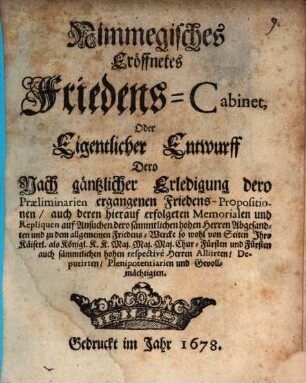 9.
Nimmegisches
Eröffnetes
Friedens-Cabinet,
Oder
Eigentlicher Entwurff
Dero
Nach gäntzlicher Erledigung dero
Præliminarien ergangenen Friedens-Propositio-
nen / auch deren hierauf erfolgeten Memorialen und
Repliquen auf Ansuchen dero sämmtlichen hohen Herren Abgesand-
ten und zu dem allgemeinen Friedens-Werck so wohl von Seiten Ihro
Käiserl. als Königl. K. K. Maj. Maj. Maj. Chur-Fürsten und Fürsten
auch sämmtlichen hohen respectivè Herren Alliirten / De-
putirten / Plenipotentiarien und Gevoll-
mächtigten.
Gedruckt im Jahr 1678.